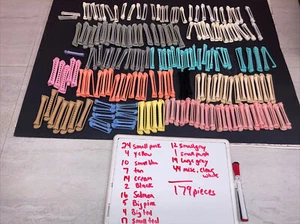 24 small pink
4 yellow
10 small blue
7 tan
14 cream
2 Black
16 Salmon
5 Big pink
4 Big red
small red
12 small gray
1 small purple
19 large gray
44 misc, clear
white
179 pieces